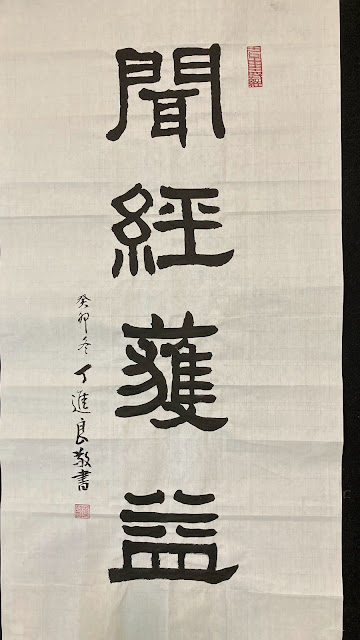 聞經獲益
癸卯冬丁進良敬書